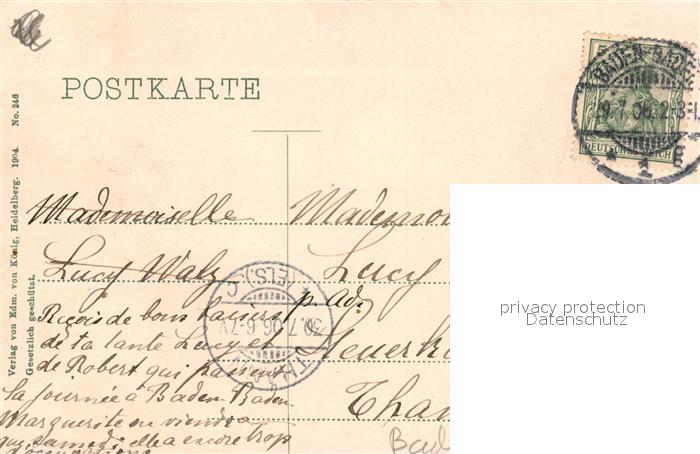 POSTKARTE
BADEN-BADEN
9.7.06.2-3
1
DEUTSCHES REICH
Verlag von Edm. von König, Heidelberg. 1904. No. 246
Gesetzlich geschützt.
Mademoiselle
Lucy Walz
Reçois de bons baisers
de ta tante Lucy et
de Robert qui passent
la journée à Baden-Baden
Marguerite en viendra
que samedi elle a encore trop
d'occupations
Mademoi
Lucy
p. ad.
Tha
(ELS.) C
30.7.06.6-7V
THA
Bad
privacy protection
Datenschutz